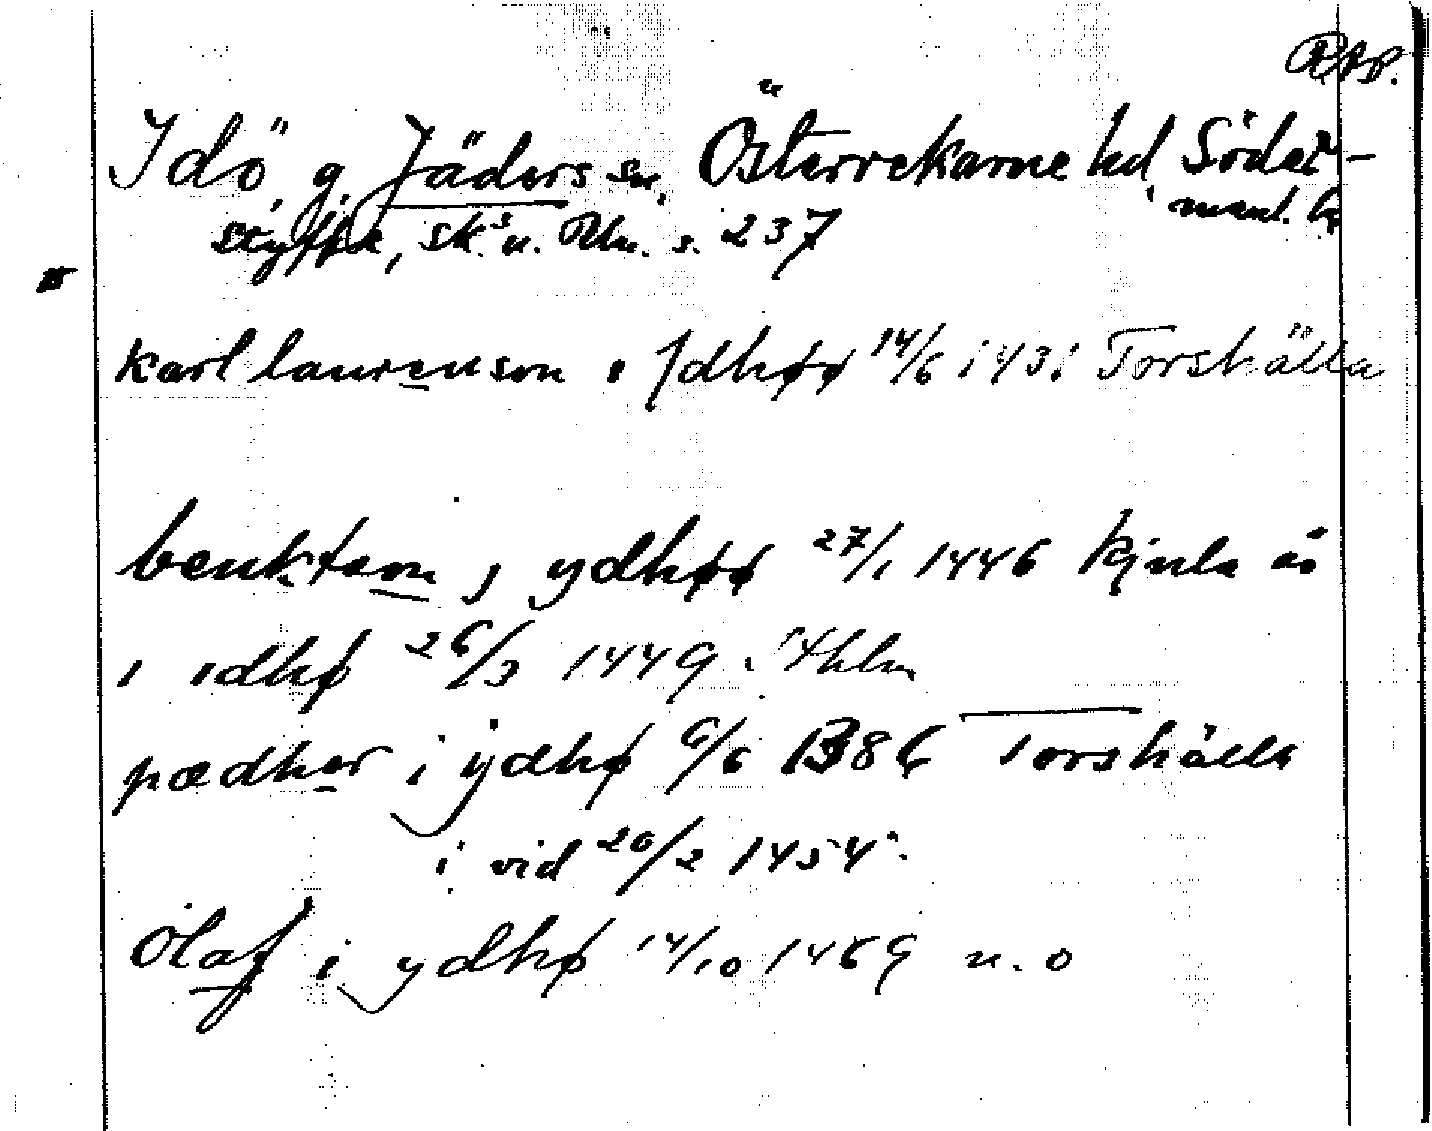 RAP.
Idö g. Jäders sn, Österrekarne hd Söder-
manl. l.
Styffe, Sk. u. Un. s. 237
karl laurenson i Jdhøø 14/6 1431 Torshälla
benktem j ydhøø 27/1 1446 Kjula ås
i idhø 26/3 1449 Sthlm
pædher i ydhø 6/6 1386 Torshälla
i vid 20/2 1454
Olaf i ydhø 14/10 1469 u. o